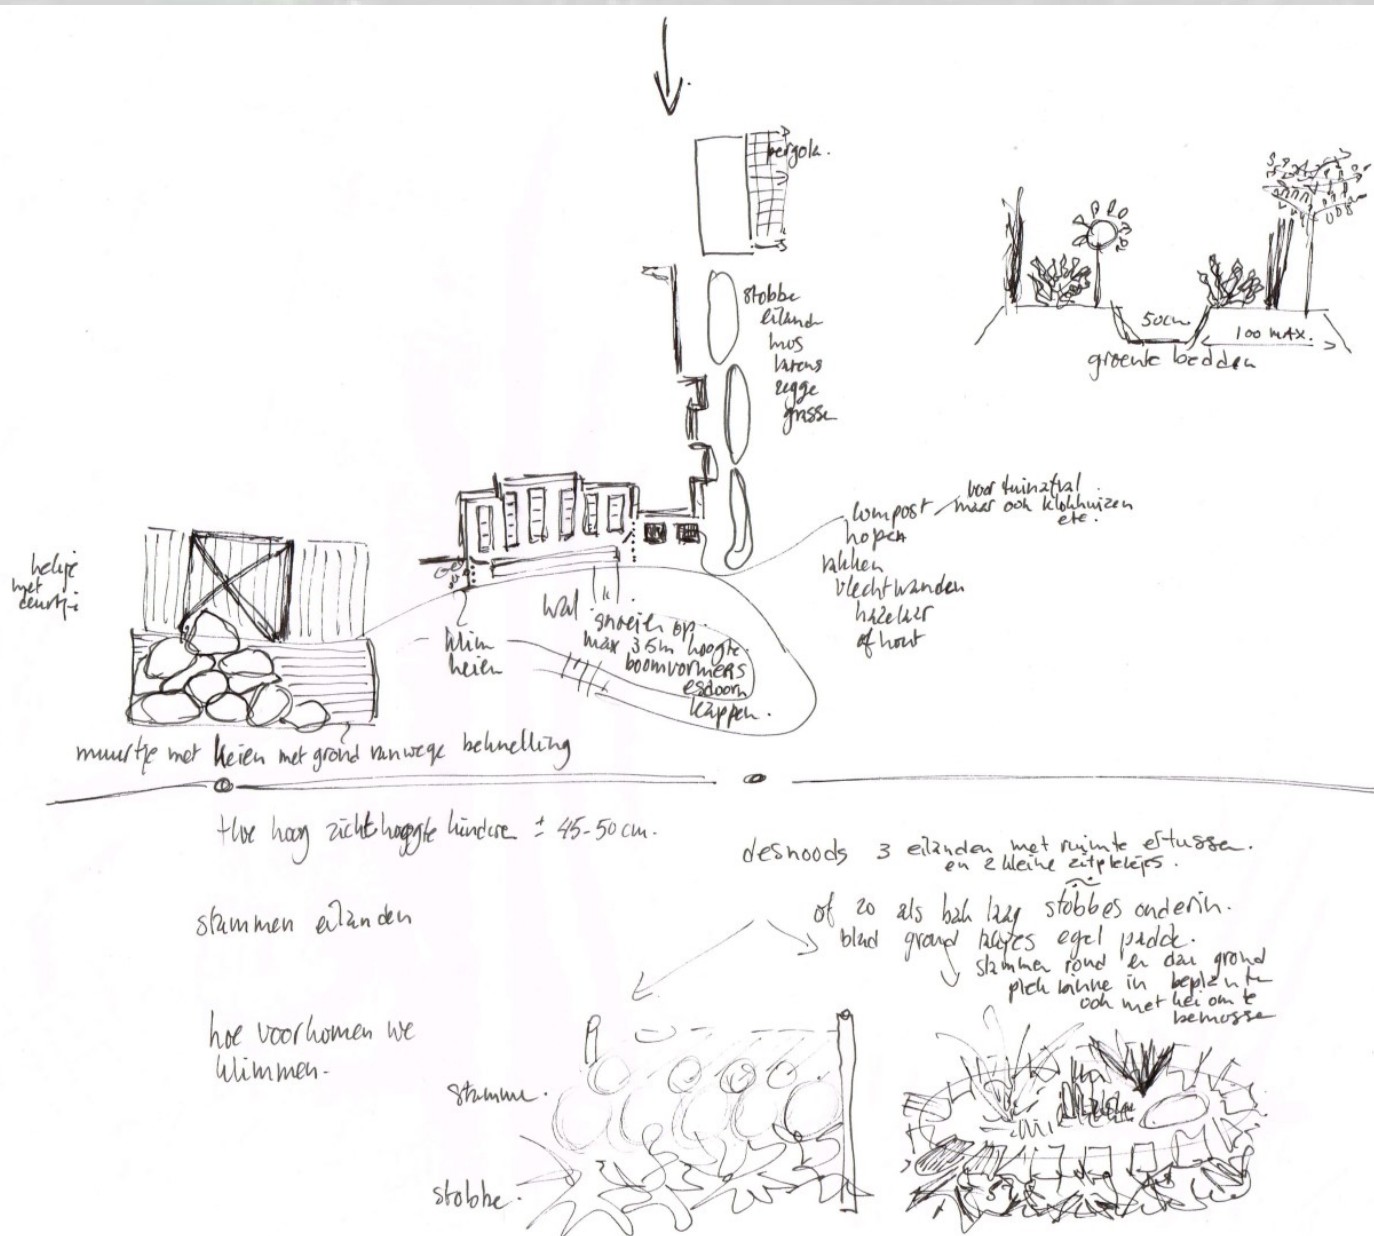 pergola.
stobbe
eiland
mos
varens
zegge
grasse
50cm
100 MAX.
groente bedden
compost
hopen
vakken
vlechtwanden
hazelaar
of hout
voor tuinafval
maar ook klokhuizen
etc.
hekje
met
deurtje
klim
keien
wal
snoeien op
max 35m hoogte
boomvormers
esdoorn
kappen.
muurtje met keien met grond vanwege beknelling
Hoe hoog zichthoogte kindere ± 45-50 cm.
stammen eilanden
hoe voorkomen we
klimmen.
desnoods 3 eilanden met ruimte ertussen.
en 2 kleine zitplekjes.
of zo als bak laag stobbes onderin.
blad grond takjes egel padde.
stammen rond en dan grond
plek binne in beplante
ook met kei om te
bemosse
stamme.
stobbe.